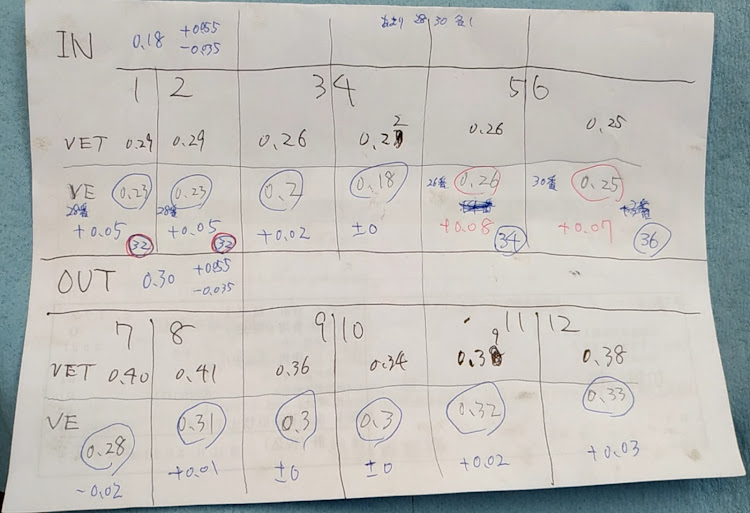 28 30
IN 0.18 +0.055
-0.035
1 2 3 4 5 6
VET 0.29 0.29 0.26 0.22 0.26 0.25
VE 0.23 0.23 0.2 0.18 26番 0.26 30番 0.25
28番 28番
+0.05 32 +0.05 32 +0.02 ±0 +0.08 34 +0.07 36
OUT 0.30 +0.055
-0.035
7 8 9 10 11 12
VET 0.40 0.41 0.36 0.34 0.39 0.38
VE 0.28 0.31 0.3 0.3 0.32 0.33
-0.02 +0.01 ±0 ±0 +0.02 +0.03